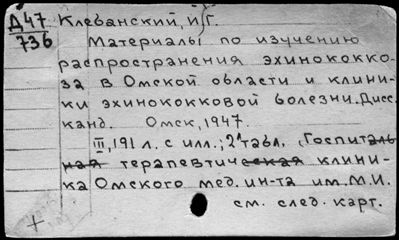 Д47 Клебанский, И. Г.
736 Материалы по изучению
распространения эхинококко-
за в Омской области и клини-
ки эхинококковой болезни. Дисс.
канд. Омск, 1947.
III, 191 л. с илл.; 21 табл. (Госпиталь-
ная терапевтическая клини-
ка Омского мед. ин-та им. М.И.
см. след. карт.